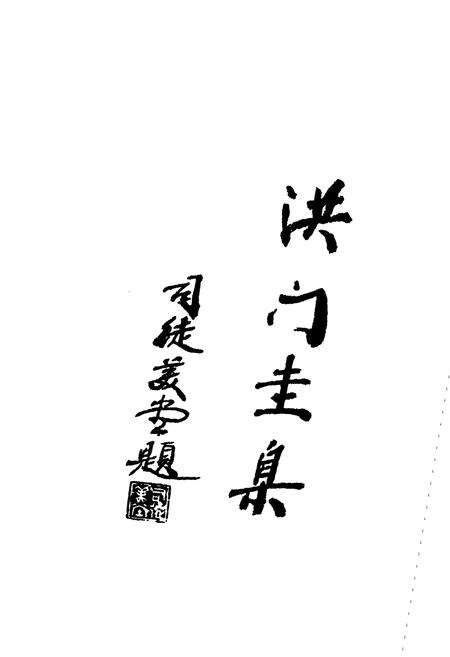 洪门圭臬
司徒美堂題